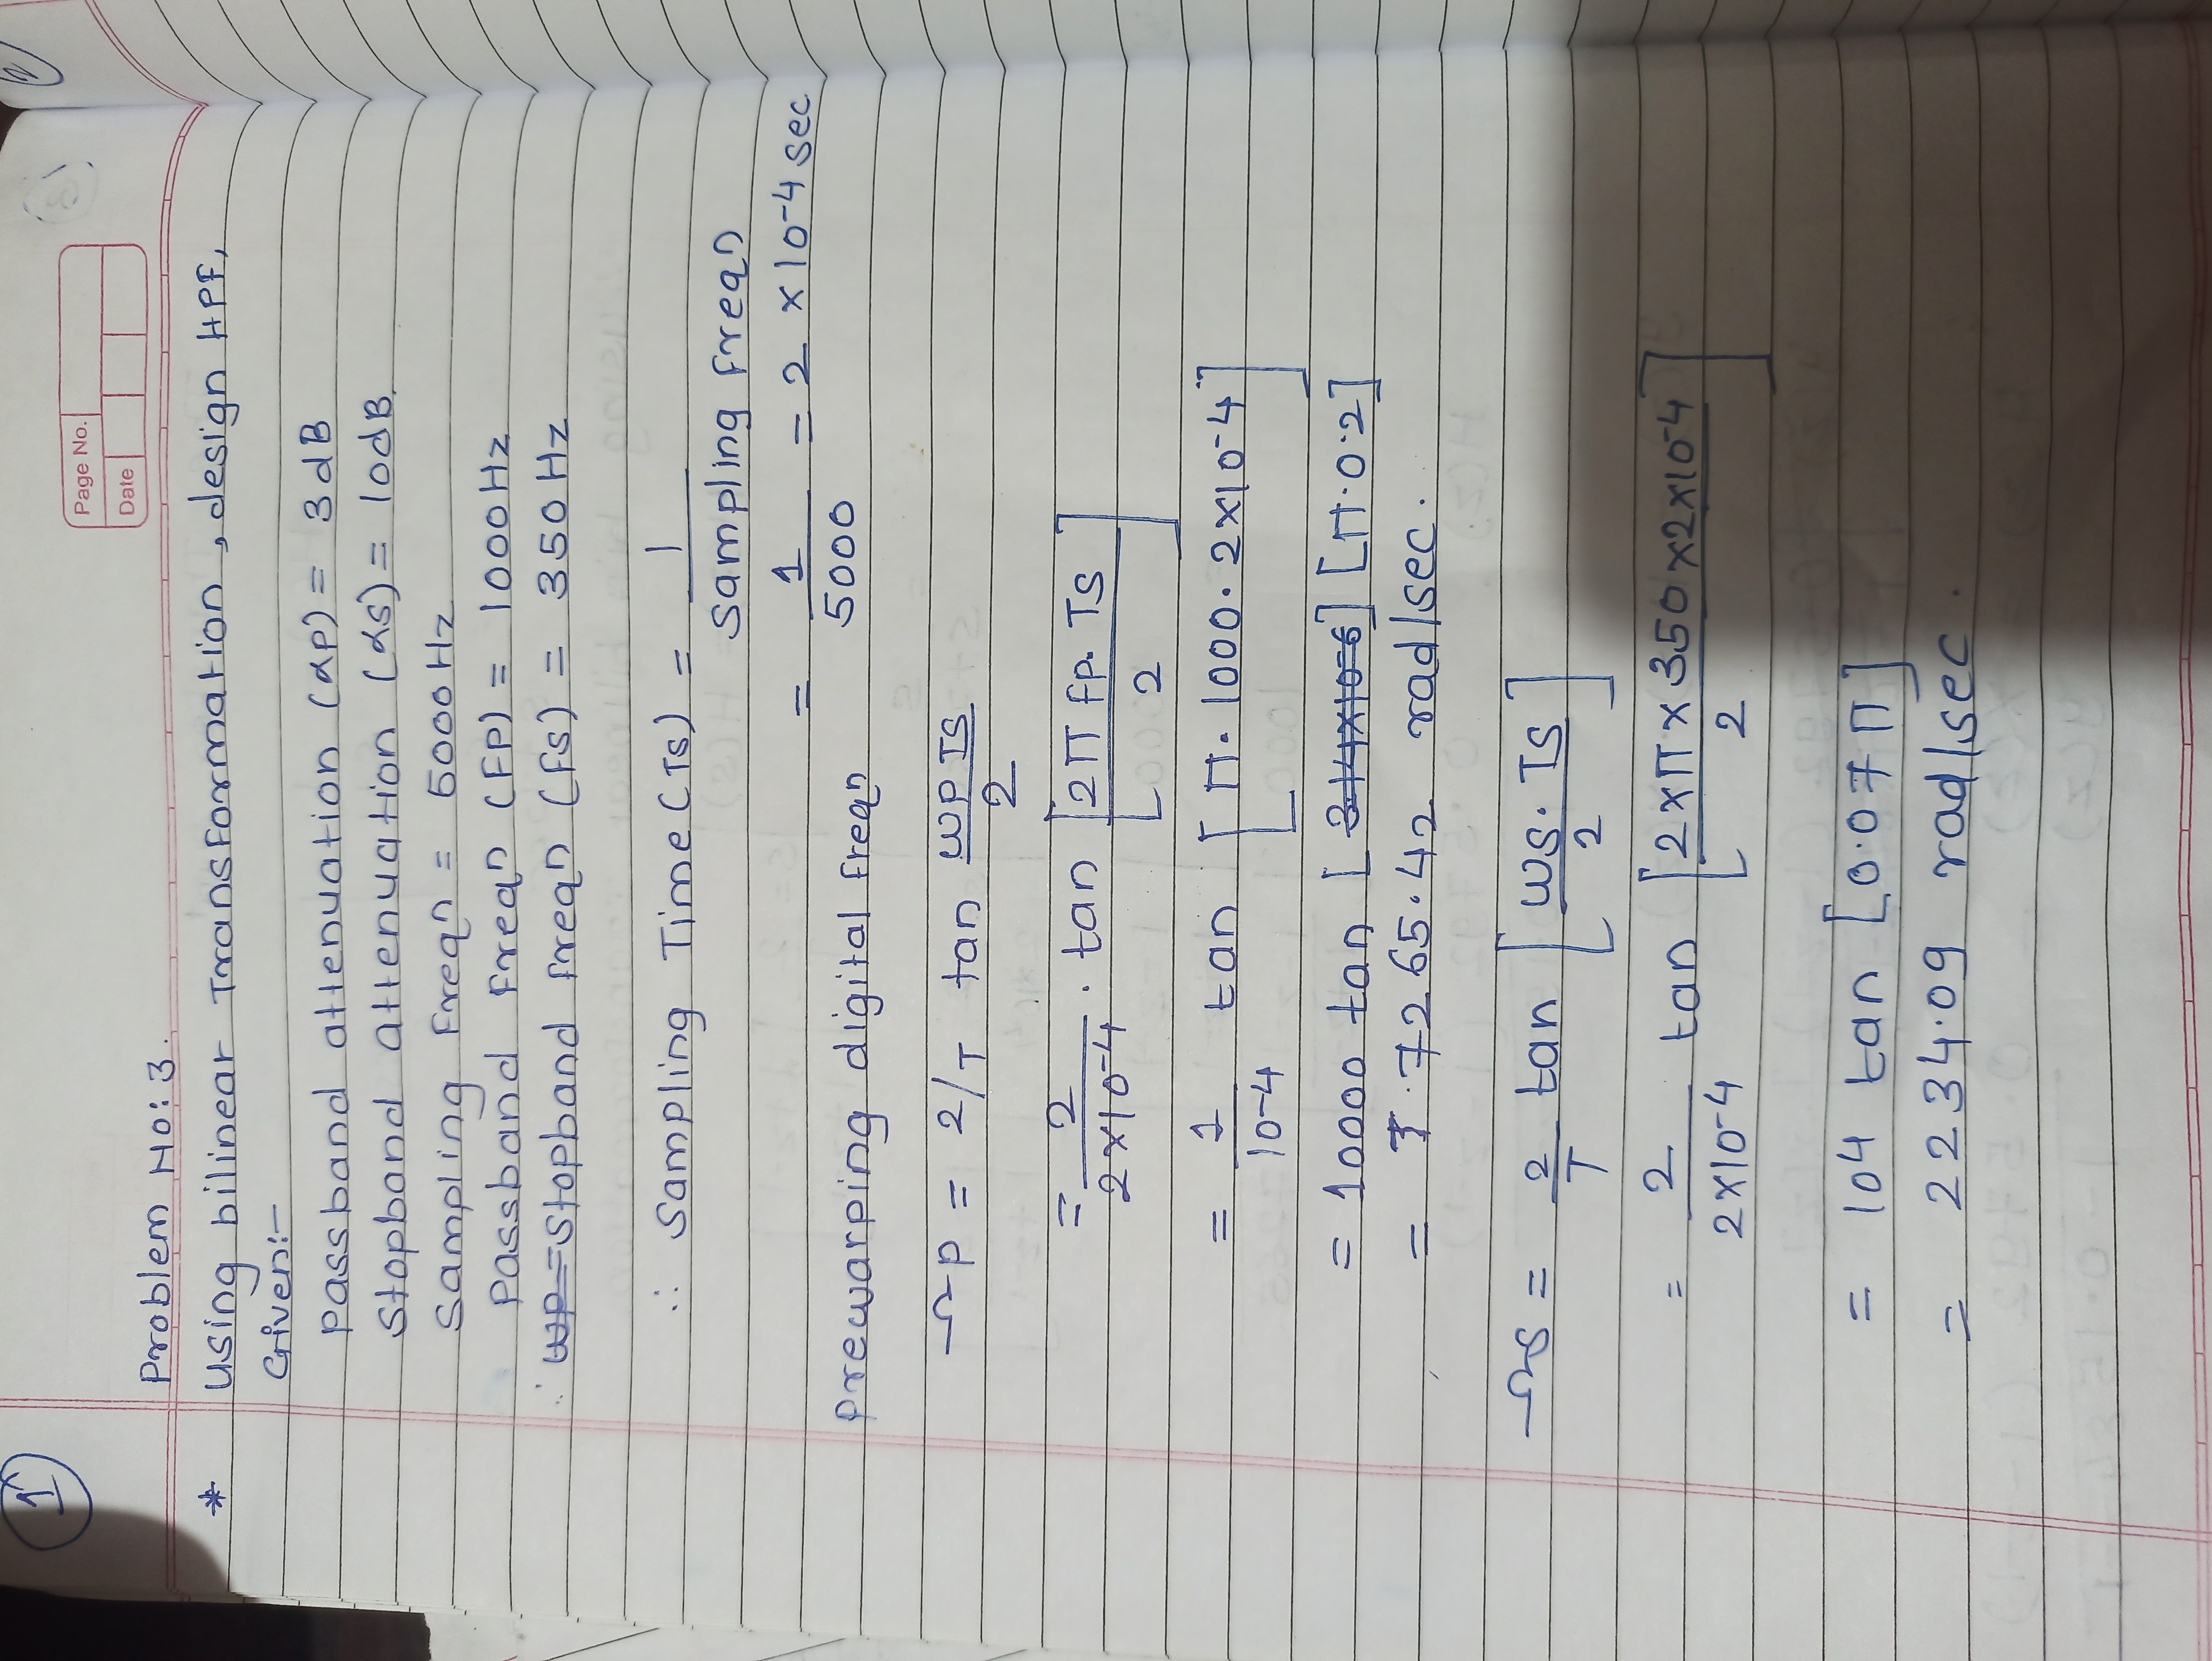 1
2
Page No.
Date
Problem No: 3.
* Using bilinear Transformation, design HPF,
Given:-
Passband attenuation (αp) = 3dB
Stopband attenuation (αs) = 10dB.
Sampling Freqn = 5000 Hz
Passband Freqn (FP) = 1000 Hz
∴ wp = Stopband freqn (fs) = 350 Hz
∴ Sampling Time (Ts) = 1
Sampling freqn
= 1/5000 = 2 × 10-4 sec
Prewarping digital freqn
Ωp = 2/T tan wp Ts/2
= 2/2×10-4 . tan [2π fp. Ts/2]
= 1/10-4 tan [π. 1000. 2×10-4]
= 10000 tan [3.14×10-6] [π.0.2]
= 7265.42 rad/sec.
Ωs = 2/T tan [ws. Ts/2]
= 2/2×10-4 tan [2×π×350×2×10-4/2]
= 104 tan [0.07π]
= 2234.09 rad/sec.